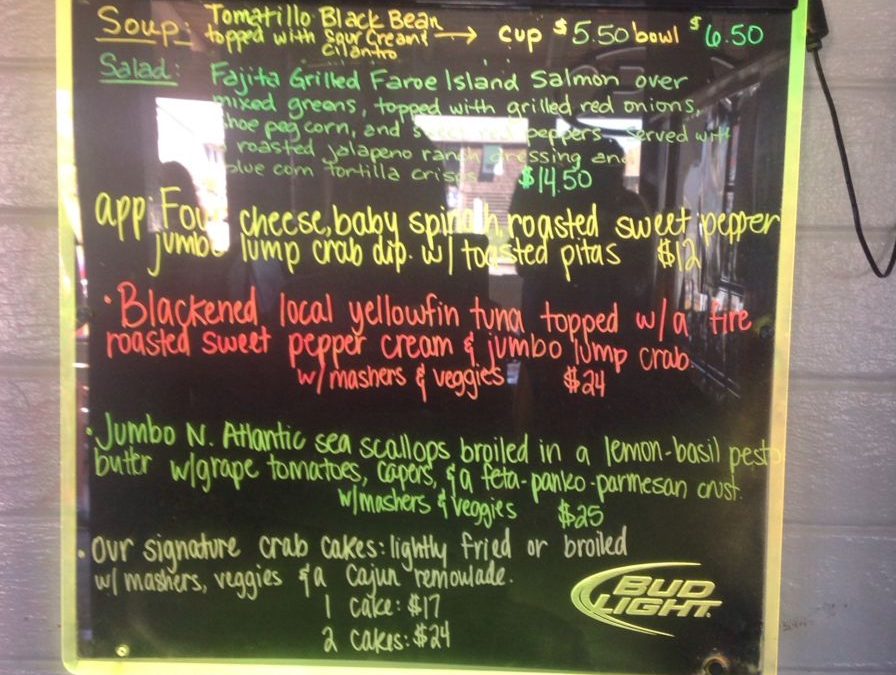 Soup: Tomatillo Black Bean
topped with Sour Cream & → cup $5.50 bowl $6.50
cilantro
Salad: Fajita Grilled Faroe Island Salmon over
mixed greens, topped with grilled red onions,
shoe peg corn, and sweet red peppers. Served with
a roasted jalapeno ranch dressing and
blue corn tortilla crisps $14.50
app: Four cheese, baby spinach, roasted sweet pepper
jumbo lump crab dip. w/ toasted pitas $12
• Blackened local yellowfin tuna topped w/ a fire
roasted sweet pepper cream & jumbo lump crab
w/ mashers & veggies $24
• Jumbo N. Atlantic sea scallops broiled in a lemon-basil pesto
butter w/ grape tomatoes, capers, & a feta-panko-parmesan crust.
w/ mashers & veggies $25
• Our signature crab cakes: lightly fried or broiled
w/ mashers, veggies & a cajun remoulade.
1 cake: $17
2 cakes: $24
BUD
LIGHT.